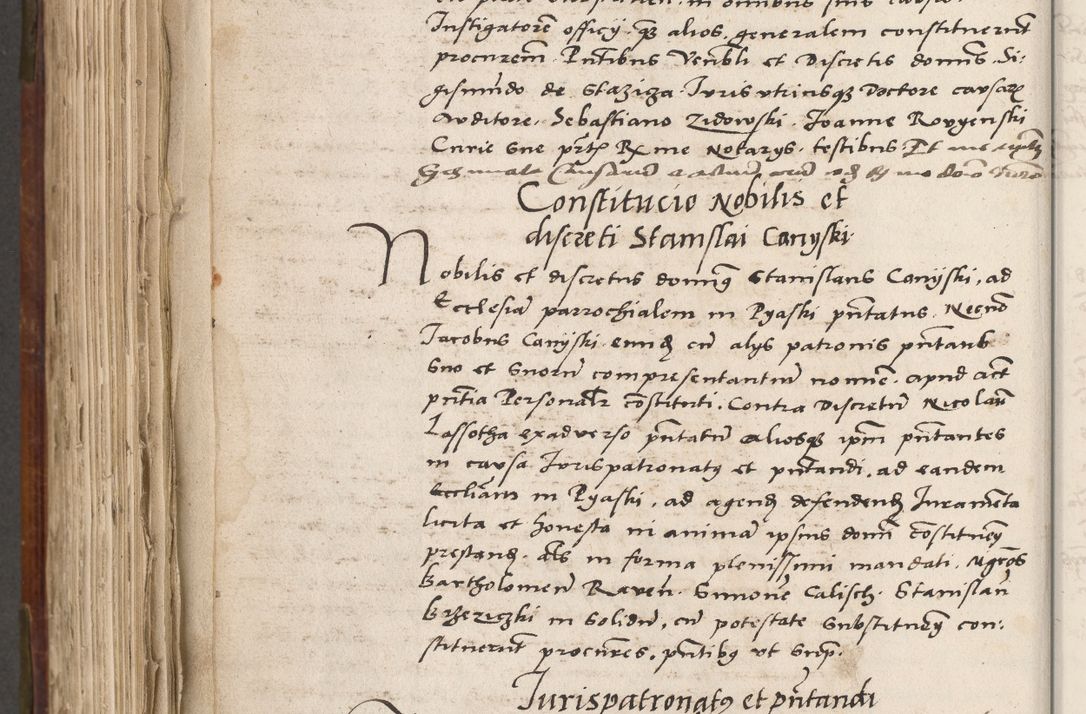 Instigatorem officij qz alios generalem constituerunt
procurem Pntibus Venbli et Discretis domns Si:
gismundo de Staziza Iuris utriusqz Doctore causarz
Auditore. Sebastiano Zidowski. Ioanne Rovgenski
Curie sne Notarys. testibus Et me
Constitucio Nobilis et
discreti Stanislai Canyski
Nobilis et discretus domnq Stanislaus Canÿski, ad
Ecclesia parrochialem in Pyaski pntatus. Necno
Iacobus Canÿski cu alijs patronis pntantb
suo et suoru compresentantiu nomine. apud act
pntia Personalr costituti. Contra Discretu Nicolau
Lassotha exadverso pntatu aliosqz ipm pntantes
in causa Iurispatronatq et pntandi, ad eandem
Eccliam in Pyaski, ad agend defendend Iuramenta
licita et honesta in anima ipsius domi costitueñ
prestand. Als in forma plenissimi mandati. Mgros
Bartholomeu Raven. Simone Calisch. Stanislau
Brzeziczki in solidu, cu potestate substitueñ con:
stituerunt procures, pntibq ut supr.
Iurispatronatq et pntandi